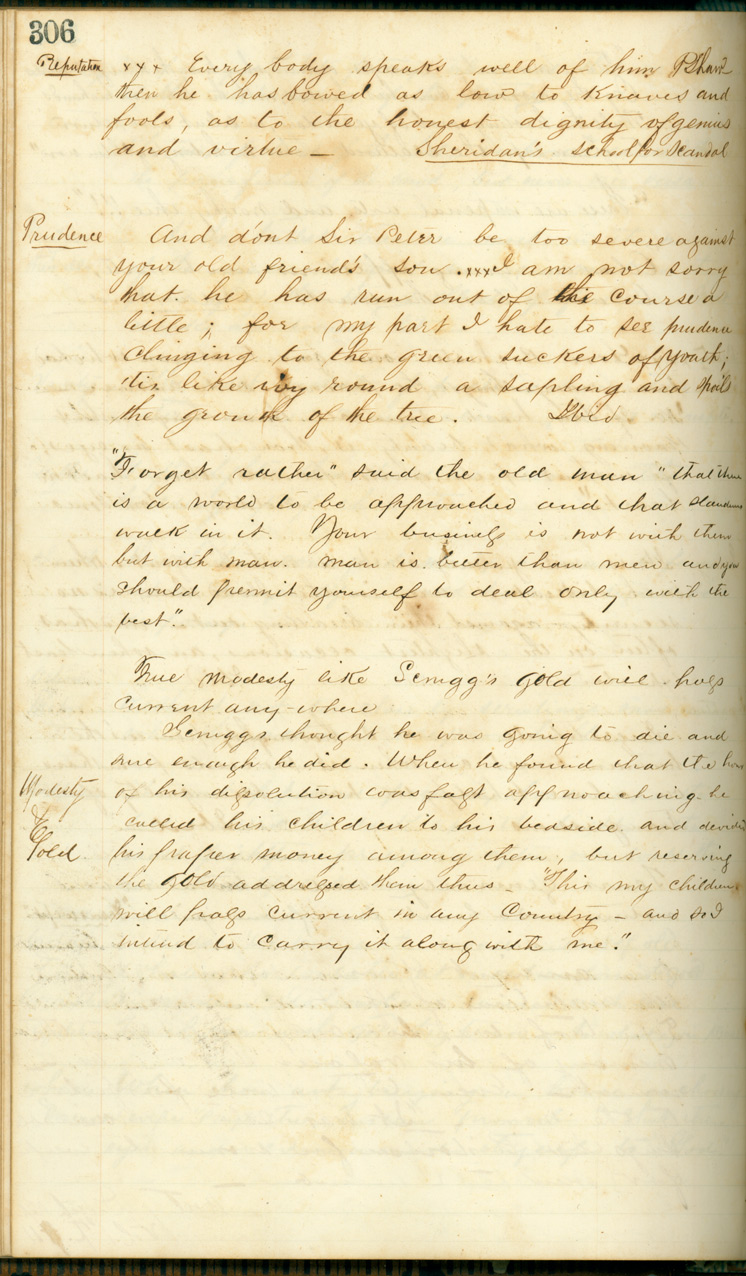 306
Reputation
x x x Every body speaks well of him Pshaw
then he has bowed as low to Knaves and
fools, as to the honest dignity of genius
and virtue — Sheridan's school for Scandal
Prudence
And dont Sir Peter be too severe against
your old friend's son . xxx I am not sorry
that he has run out of his course a
little ; for my part I hate to see prudence
clinging to the green suckers of youth ;
'tis like ivy round a sapling and spoils
the growth of the tree . Ibid
"Forget rather" said the old man "that there
is a world to be approached and that
walk in it. Your business is not with them
but with man. man is better than men and you
should permit yourself to deal only with the
best".
True modesty like Scruggs's gold will pass
current any-where
Scruggs thought he was going to die and
sure enough he did. When he found that the hour
of his dissolution was fast approaching he
called his children to his bedside and divided
his paper money among them, but reserving
the gold addressed them thus — "This my children
will pass current in any Country — and so I
intend to carry it along with me."
Modesty
&
Gold.